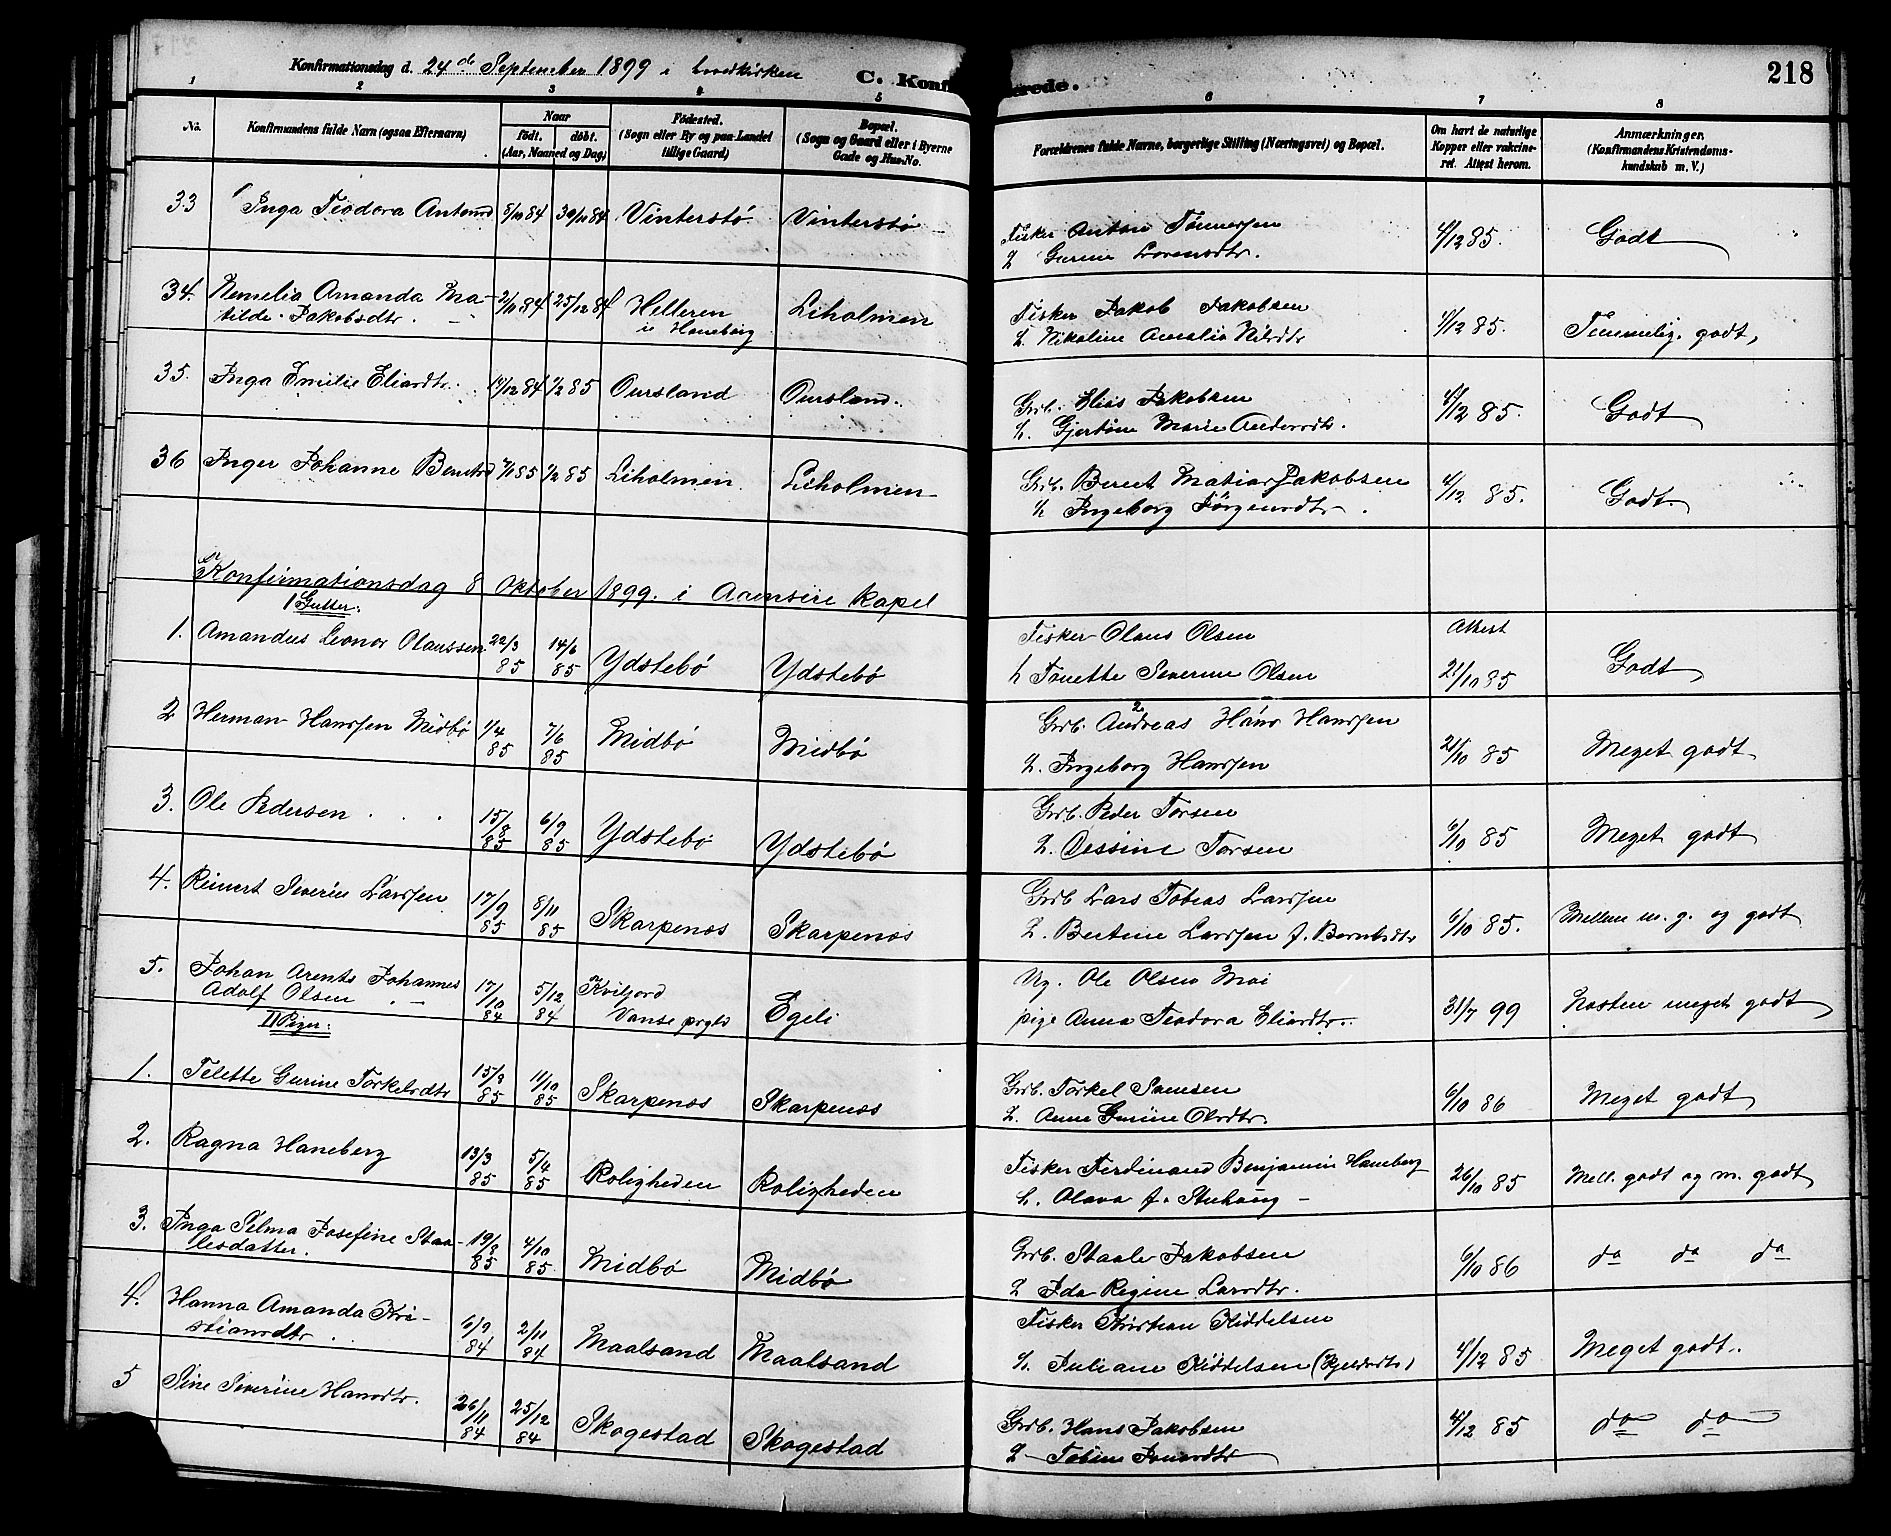 Konfirmationsdag d. 24de September 1899 i hovedkirken C. Konfirmerede. 218
1 2 3 4 5 6 7 8
No. Konfirmandens fulde Navn (ogsaa Efternavn) Naar født. døbt. (Aar, Maaned og Dag) Fødested. (Sogn eller By og paa Landet tillige Gaard) Bopæl. (Sogn og Gaard eller i Byerne Gade og Hus-No. Forældrenes fulde Navne, borgerlige Stilling (Næringsvei) og Bopæl. Om havt de naturlige Kopper eller vakcineret. Attest herom. Anmærkninger. (Konfirmandens Kristendomskundskab m. V.)
33 Inga Teodora Antonsd 8/10 84 30/11 84 Vinterstø Vinterstø Fisker Anton Tønnessen 4/12 85. Godt
& Gurine Lorensdtr.
34. Kemelia Amanda Ma- 2/11 84 25/12 84 Helleren Liholmen Fisker Jakob Jakobsen 4/12 85. Temmelig godt,
tilde Jakobsdtr. i Haneberg & Nikoline Amalia Nilsdtr
35. Inga Emilie Eliasdtr. 14/12 84 1/2 85 Oursland Oursland. Grb. Elias Jakobsen 4/12 85. Godt
& Gjertine Marie Andersdtr.
36 Inger Johanne Berntsd 7/1 85 1/2 85 Liholmen Liholmen Grb. Bernt Matias Jakobsen 4/12 85. Godt.
& Ingeborg Jørgensdtr.
Konfirmationsdag 8 Oktober 1899. i Aaensire kapel
I Gutter:
1. Amandus Leonor Olaussen 22/3 85 14/6 85 Ydstebø Ydstebø Fisker Olaus Olsen Attest 21/10 85 Godt
& Tonette Severine Olsen
2 Herman Hanssen Midbø 1/4 85 7/6 85 Midbø Midbø Grb. Andreas Hans Hanssen 21/10 85 Meget godt
2. Ingeborg Hanssen
3. Ole Pedersen 15/8 85 6/9 85 Ydstebø Ydstebø Grb. Peder Torsen 6/10 85 Meget godt
2. Torsen
4. Reinert Severin Larssen 17/9 85 8/11 85 Skarpenes Skarpenes Grb Lars Tobias Larssen 6/10 85. Mellem m. g. og godt
2. Bertine Larssen f. Berntsdtr
5. Johan Arents Johannes 17/10 84 5/12 84 Kviljord Egeli Ug. Ole Olsen Moi 31/7 99 Næsten meget godt
Adolf Olsen Vanse prgld pige Anna Teodora Eliasdtr.
II Piger:
1. Telette Gurine Torkelsdtr 15/8 85 11/10 85 Skarpenes Skarpenes Grb. Torkel Samsen 6/10 86 Meget godt
2. Anne Gurine Olsdtr.
2. Ragna Haneberg 13/3 85 5/4 85 Roligheden Roligheden Fisker Ferdinand Benjamin Haneberg 26/10 85 Mell. godt og m. godt
& Olava f. Stuhaug
3. Inga Selma Josefine Staa- 19/8 85 4/10 85. Midbø Midbø Grb. Staale Jakobsen 6/10 86 do do do
lesdatter. & Ida Regine Larsdtr.
4. Hanna Amanda Kri- 10/9 84 2/11 84 Maalsand Maalsand Fisker Kristian Kiddelsen 4/12 85 Meget godt.
stiansdtr & Juliane Kiddelsen
5 Sine Severine Hansdtr. 26/11 84 25/12 84 Skogestad Skogestad Grb. Hans Jakobsen 4/12 85 do do
& Tobine Jonasdtr